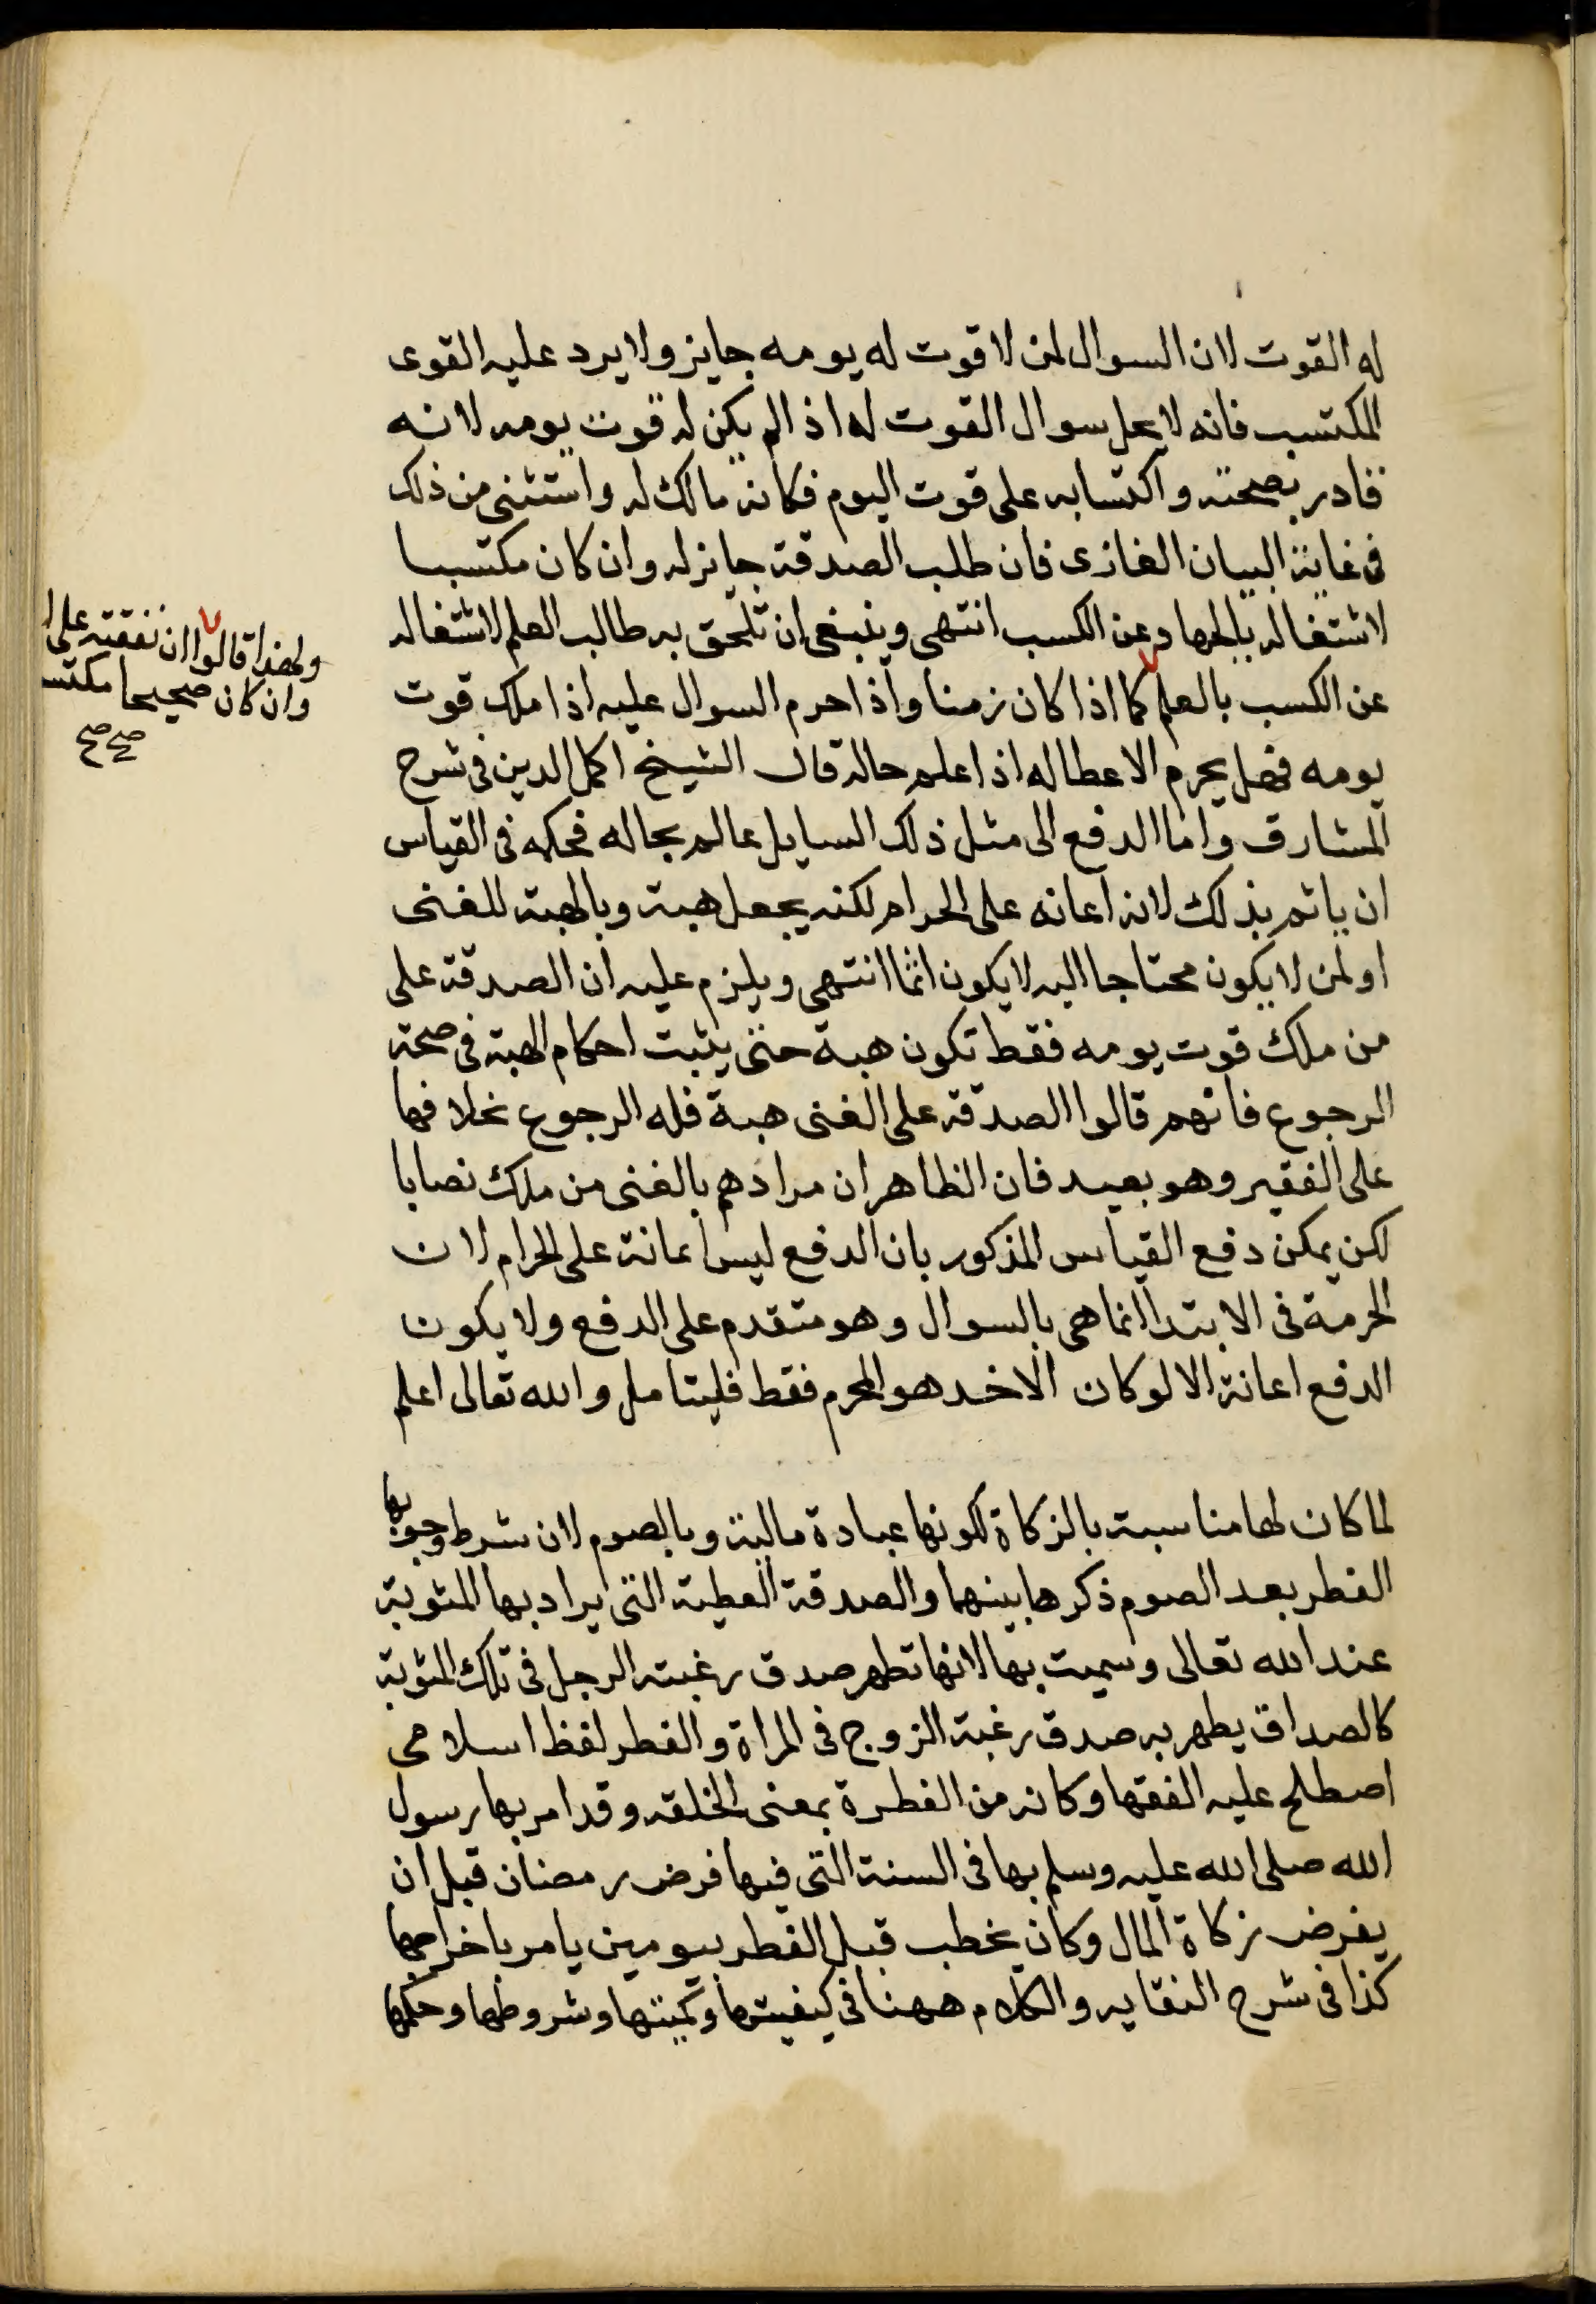 له القوت لان السوال لمن لا قوت له يومه جايز ولا يرد عليه القوى
المكتسب فانه لا يحل سوال القوت له اذا لم يكن له قوت يومه لانه
قادر بصحته واكتسابه على قوت اليوم فكانه مالك له واستثنى من ذلك
فى غاية البيان الغازى فان طلب الصدقة جايز له وان كان مكتسبا
لاشتغاله بالجهاد عن الكسب انتهى وينبغى ان تلحق به طالب العلم لاشتغاله
عن الكسب بالعلم كما اذا كان زمنا واذا حرم السوال عليه اذا ملك قوت
يومه فهل يحرم الاعطا له اذا علم حاله قال الشيخ اكمل الدين فى شرح
المشارق واما الدفع الى مثل ذلك السايل عالم بحاله فحكمه فى القياس
ان ياثم بذلك لانه اعانه على الحرام لكنه يجعل هبة وبالهبة للغنى
او لمن لا يكون محتاجا اليه لا يكون اثما انتهى ويلزم عليه ان الصدقة على
من ملك قوت يومه فقط تكون هبة حتى يثبت احكام الهبة فى صحة
الرجوع فانهم قالوا الصدقة على الغنى هبة فله الرجوع بخلافها
على الفقير وهو بعيد فان الظاهر ان مرادهم بالغنى من ملك نصابا
لكن يمكن دفع القياس المذكور بان الدفع ليس اعانة على الحرام لان
الحرمة فى الابتدا انما هى بالسوال وهو متقدم على الدفع ولا يكون
الدفع اعانة الا لو كان الاخد هو المحرم فقط فليتامل والله تعالى اعلم
لما كان لها مناسبة بالزكاة لكونها عبادة مالية وبالصوم لان شرط وجوبها
الفطر بعد الصوم ذكرها بينهما والصدقة العطية التى يراد بها المثوبة
عند الله تعالى وسميت بها لانها تظهر صدق رغبته الرجل فى تلك المثوبة
كالصداق يظهر به صدق رغبة الزوج فى المراة والفطر لفظ اسلامى
اصطلح عليه الفقها وكانه من الفطرة بمعنى الخلقه وقد امر بها رسول
الله صلى الله عليه وسلم بها فى السنة التى فيها فرض رمضان قبل ان
يفرض زكاة المال وكان يخطب قبل الفطر بيومين يامر باخراجها
كذا فى شرح النقايه والكلام ههنا فى كيفيتها وكميتها وشروطها وحكمها
ولهذا قالوا ان نفقته على ا
وان كان صحيحا مكتسبا
صح صح